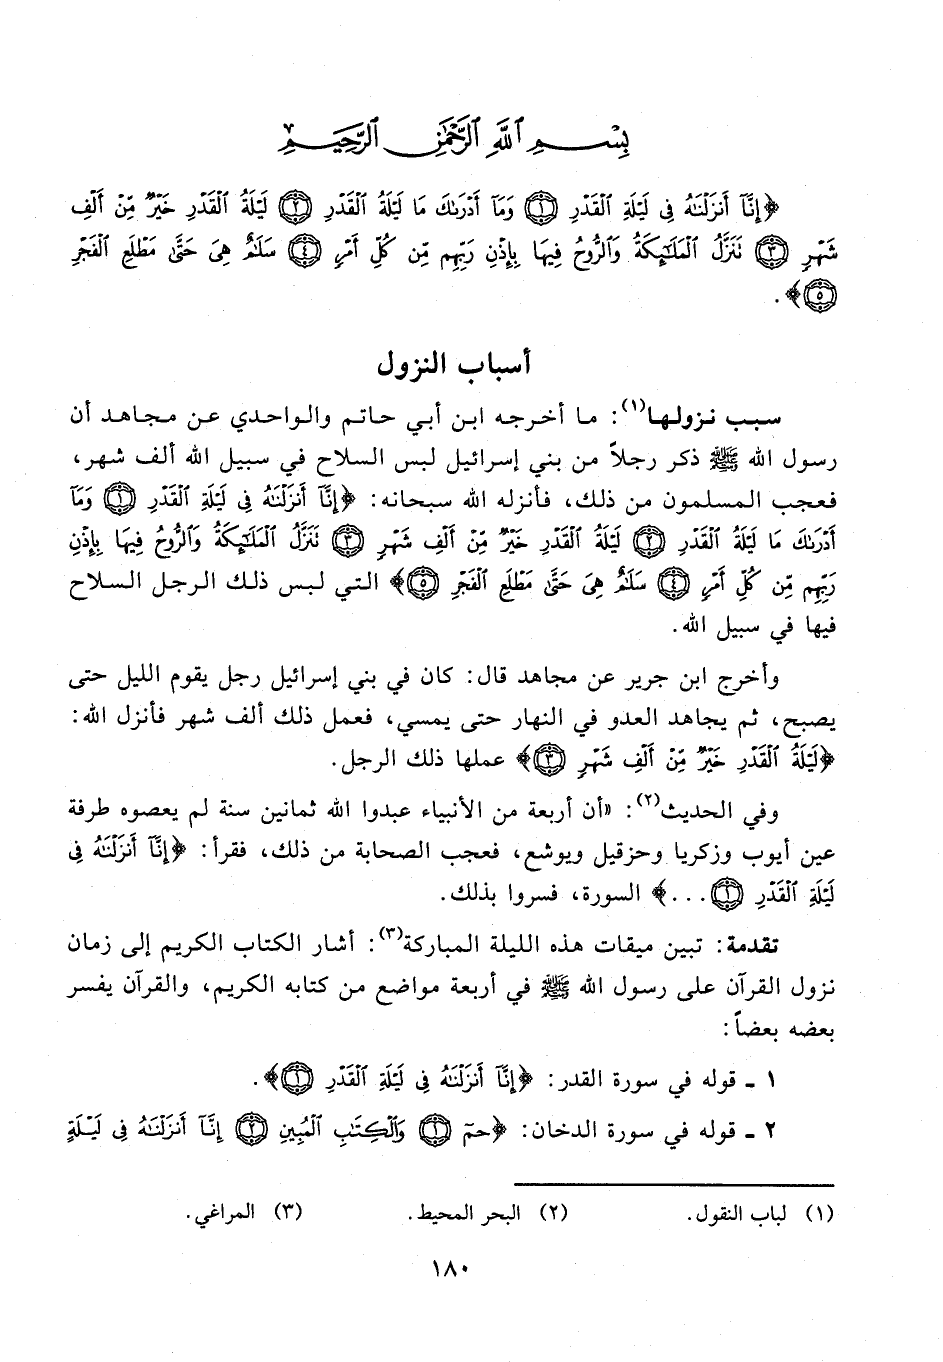 بِسْمِ ٱللَّهِ ٱلرَّحْمَٰنِ ٱلرَّحِيمِ
﴿إِنَّآ أَنزَلْنَٰهُ فِى لَيْلَةِ ٱلْقَدْرِ ﴿١﴾ وَمَآ أَدْرَىٰكَ مَا لَيْلَةُ ٱلْقَدْرِ ﴿٢﴾ لَيْلَةُ ٱلْقَدْرِ خَيْرٌ مِّنْ أَلْفِ
شَهْرٍ ﴿٣﴾ تَنَزَّلُ ٱلْمَلَٰٓئِكَةُ وَٱلرُّوحُ فِيهَا بِإِذْنِ رَبِّهِم مِّن كُلِّ أَمْرٍ ﴿٤﴾ سَلَٰمٌ هِىَ حَتَّىٰ مَطْلَعِ ٱلْفَجْرِ
﴿٥﴾﴾.
أسباب النزول
سبب نزولها(١): ما أخرجه ابن أبي حاتم والواحدي عن مجاهد أن
رسول الله ﷺ ذكر رجلاً من بني إسرائيل لبس السلاح في سبيل الله ألف شهر،
فعجب المسلمون من ذلك، فأنزله الله سبحانه: ﴿إِنَّآ أَنزَلْنَٰهُ فِى لَيْلَةِ ٱلْقَدْرِ ﴿١﴾ وَمَآ
أَدْرَىٰكَ مَا لَيْلَةُ ٱلْقَدْرِ ﴿٢﴾ لَيْلَةُ ٱلْقَدْرِ خَيْرٌ مِّنْ أَلْفِ شَهْرٍ ﴿٣﴾ تَنَزَّلُ ٱلْمَلَٰٓئِكَةُ وَٱلرُّوحُ فِيهَا بِإِذْنِ
رَبِّهِم مِّن كُلِّ أَمْرٍ ﴿٤﴾ سَلَٰمٌ هِىَ حَتَّىٰ مَطْلَعِ ٱلْفَجْرِ ﴿٥﴾﴾ التي لبس ذلك الرجل السلاح
فيها في سبيل الله.
وأخرج ابن جرير عن مجاهد قال: كان في بني إسرائيل رجل يقوم الليل حتى
يصبح، ثم يجاهد العدو في النهار حتى يمسي، فعمل ذلك ألف شهر فأنزل الله:
﴿لَيْلَةُ ٱلْقَدْرِ خَيْرٌ مِّنْ أَلْفِ شَهْرٍ ﴿٣﴾﴾ عملها ذلك الرجل.
وفي الحديث(٢): «أن أربعة من الأنبياء عبدوا الله ثمانين سنة لم يعصوه طرفة
عين أيوب وزكريا وحزقيل ويوشع، فعجب الصحابة من ذلك، فقرأ: ﴿إِنَّآ أَنزَلْنَٰهُ فِى
لَيْلَةِ ٱلْقَدْرِ ﴿١﴾...﴾ السورة، فسروا بذلك.
تقدمة: تبين ميقات هذه الليلة المباركة(٣): أشار الكتاب الكريم إلى زمان
نزول القرآن على رسول الله ﷺ في أربعة مواضع من كتابه الكريم، والقرآن يفسر
بعضه بعضاً:
١ - قوله في سورة القدر: ﴿إِنَّآ أَنزَلْنَٰهُ فِى لَيْلَةِ ٱلْقَدْرِ ﴿١﴾﴾.
٢ - قوله في سورة الدخان: ﴿حمٓ ﴿١﴾ وَٱلْكِتَٰبِ ٱلْمُبِينِ ﴿٢﴾ إِنَّآ أَنزَلْنَٰهُ فِى لَيْلَةٍ
(١) لباب النقول. (٢) البحر المحيط. (٣) المراغي.
١٨٠